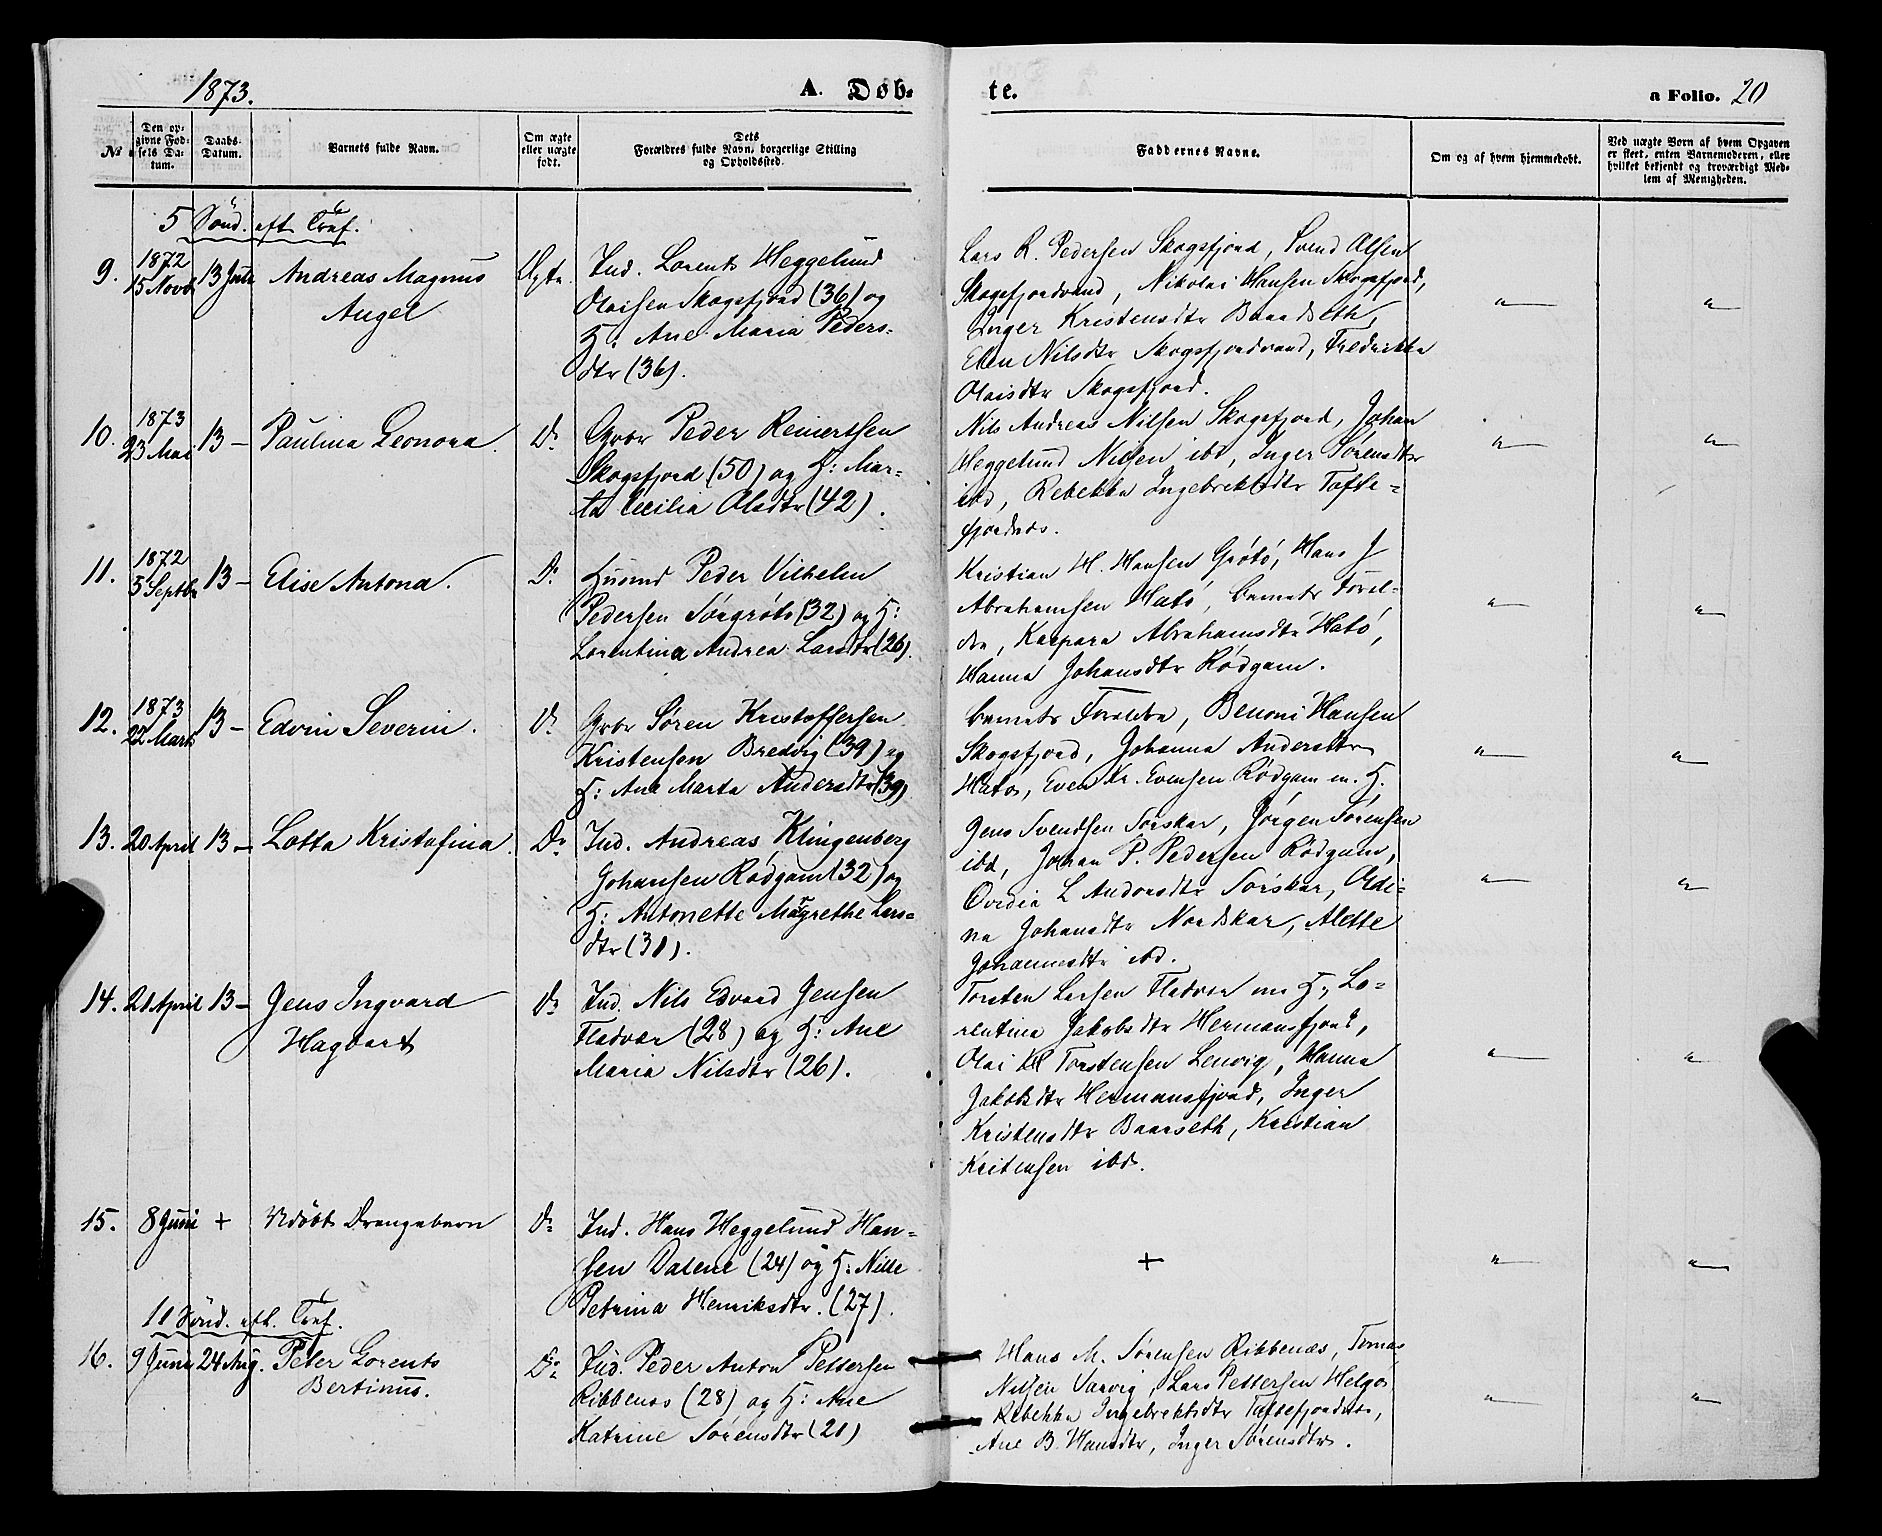 1873.
A. Døb-
te.
a Folio. 20
№
Den op-
givne Fød-
sels Da-
tum.
Daabs-
Datum.
Barnets fulde Navn.
Om ægte
eller uægte
født.
Dets
Forældres fulde Navn, borgerlige Stilling
og Opholdssted.
Faddernes Navne.
Om og af hvem hjemmedøbt.
Ved uægte Børn af hvem Opgaven
er skeet, enten Barnemoderen, eller
hvilket bekjendt og troværdigt Med-
lem af Menigheden.
5 Sönd. eft. Tref.
9.
1872
15 Novbr
13 Juli
Andreas Magnus
Angel
Ægte.
Ind. Lorents Heggelund
Olaisen Skogsfjord (36) og
H: Ane Maria Peders-
dtr (36).
Lars R. Pedersen Skogsfjord, Svend Olsen
Skogsfjordvand, Nikolai Hansen Skogsfjord,
Inger Kristensdtr Baardseth,
Elen Nilsdtr Skogsfjordvand, Fredrikke
Olaisdtr Skogsfjord.
"
"
10.
1873
23 Mai
13 –
Paulina Leonora.
Do
Gbr Peder Reinertsen
Skogsfjord (50) og H: Mar-
ta Cecilia Olsdtr (42).
Nils Andreas Nilsen Skogsfjord, Johan
Heggelund Nilsen ibd, Inger Sørensdtr
ibd, Rebekka Ingebrektsdtr Tofte-
fjordnæs.
"
"
11.
1872
5 Septbr
13 –
Elise Antona.
Do
Husmd Peder Vilhelm
Pedersen Sørgrøtö (32) og H:
Lorentina Andrea Larsdtr (26).
Kristian H. Hansen Grøtö, Hans J
Abrahamsen Hatö, barnets Forel-
dre, Kaspara Abrahamsdtr Hatö,
Hanna Johansdtr Rødgam.
"
"
12.
1873
22 Marts
13 –
Edvin Severin.
Do
Gbr Søren Kristoffersen
Kristensen Bredvig (39) og
H: Ane Marta Andersdtr (39)
barnets Foreldre, Benoni Hansen
Skogsfjord, Johanna Andersdtr
Hatö, Even Kr. Evensen Rødgam m. H.
"
"
13.
20 April
13 –
Lotta Kristofina.
Do
Ind. Andreas Klingenberg
Johansen Rødgam (32) og
H: Antonette Magrethe Lars-
dtr (31).
Jens Svendsen Sørskar, Jørgen Sørensen
ibd, Johan P. Pedersen Rødgam,
Ovedia L Andorsdtr Sørskar, Oldi-
na Johansdtr Nordskar, Alette
Johannesdtr ibd.
"
"
14.
21 April
13 –
Jens Ingvard
Hagbart
Do
Ind. Nils Edvard Jensen
Fladvær (28) og H: Ane
Maria Nilsdtr (26).
Torsten Larsen Fladvær m H., Lo-
rentina Jakobsdtr Hermansfjord,
Olai M Torstensen Lenvig, Hanna
Jakobsdtr Hermansfjord, Inger
Kristensdtr Baarseth, Kristian
Kritensen ibd.
"
"
15.
8 Juni
+
Udöbt Drengebarn
Do
Ind. Hans Heggelund Han-
sen Dalene (24) og H: Nille
Petrina Henriksdtr. (27).
+
"
"
11 Sönd. eft. Tref.
16.
9 Juni
24 Aug.
Peter Lorents
Bertinus.
Do
Ind. Peder Anton Pettersen
Ribbenes (28) og H: Ane
Katrine Sørensdtr (21)
Hans M. Sørensen Ribbenæs, Tomas
Nilsen Vanvig, Lars Pettersen Helgø
Rebekka Ingebrektsdtr Toftefjordnæs,
Ane B. Hansdtr, Inger Sørensdtr.
"
"